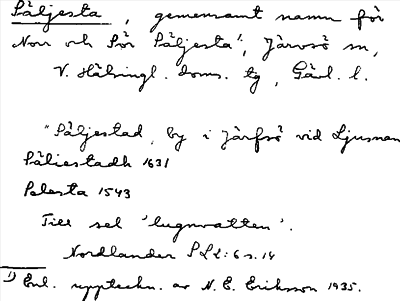 Säljesta, gemensamt namn för
Norr och Sör Säljesta¹⁾, Järvsö sn,
V. Hälsingl. doms. tg, Gävl. l.
"Säljestad, by i Järfsö vid Ljusnan
Säliestadh 1631
Selesta 1543
Till sel 'lugnvatten'.
Nordlander SLl:6 s. 14
1) Enl. uppteckn. av N. E. Eriksson 1935.